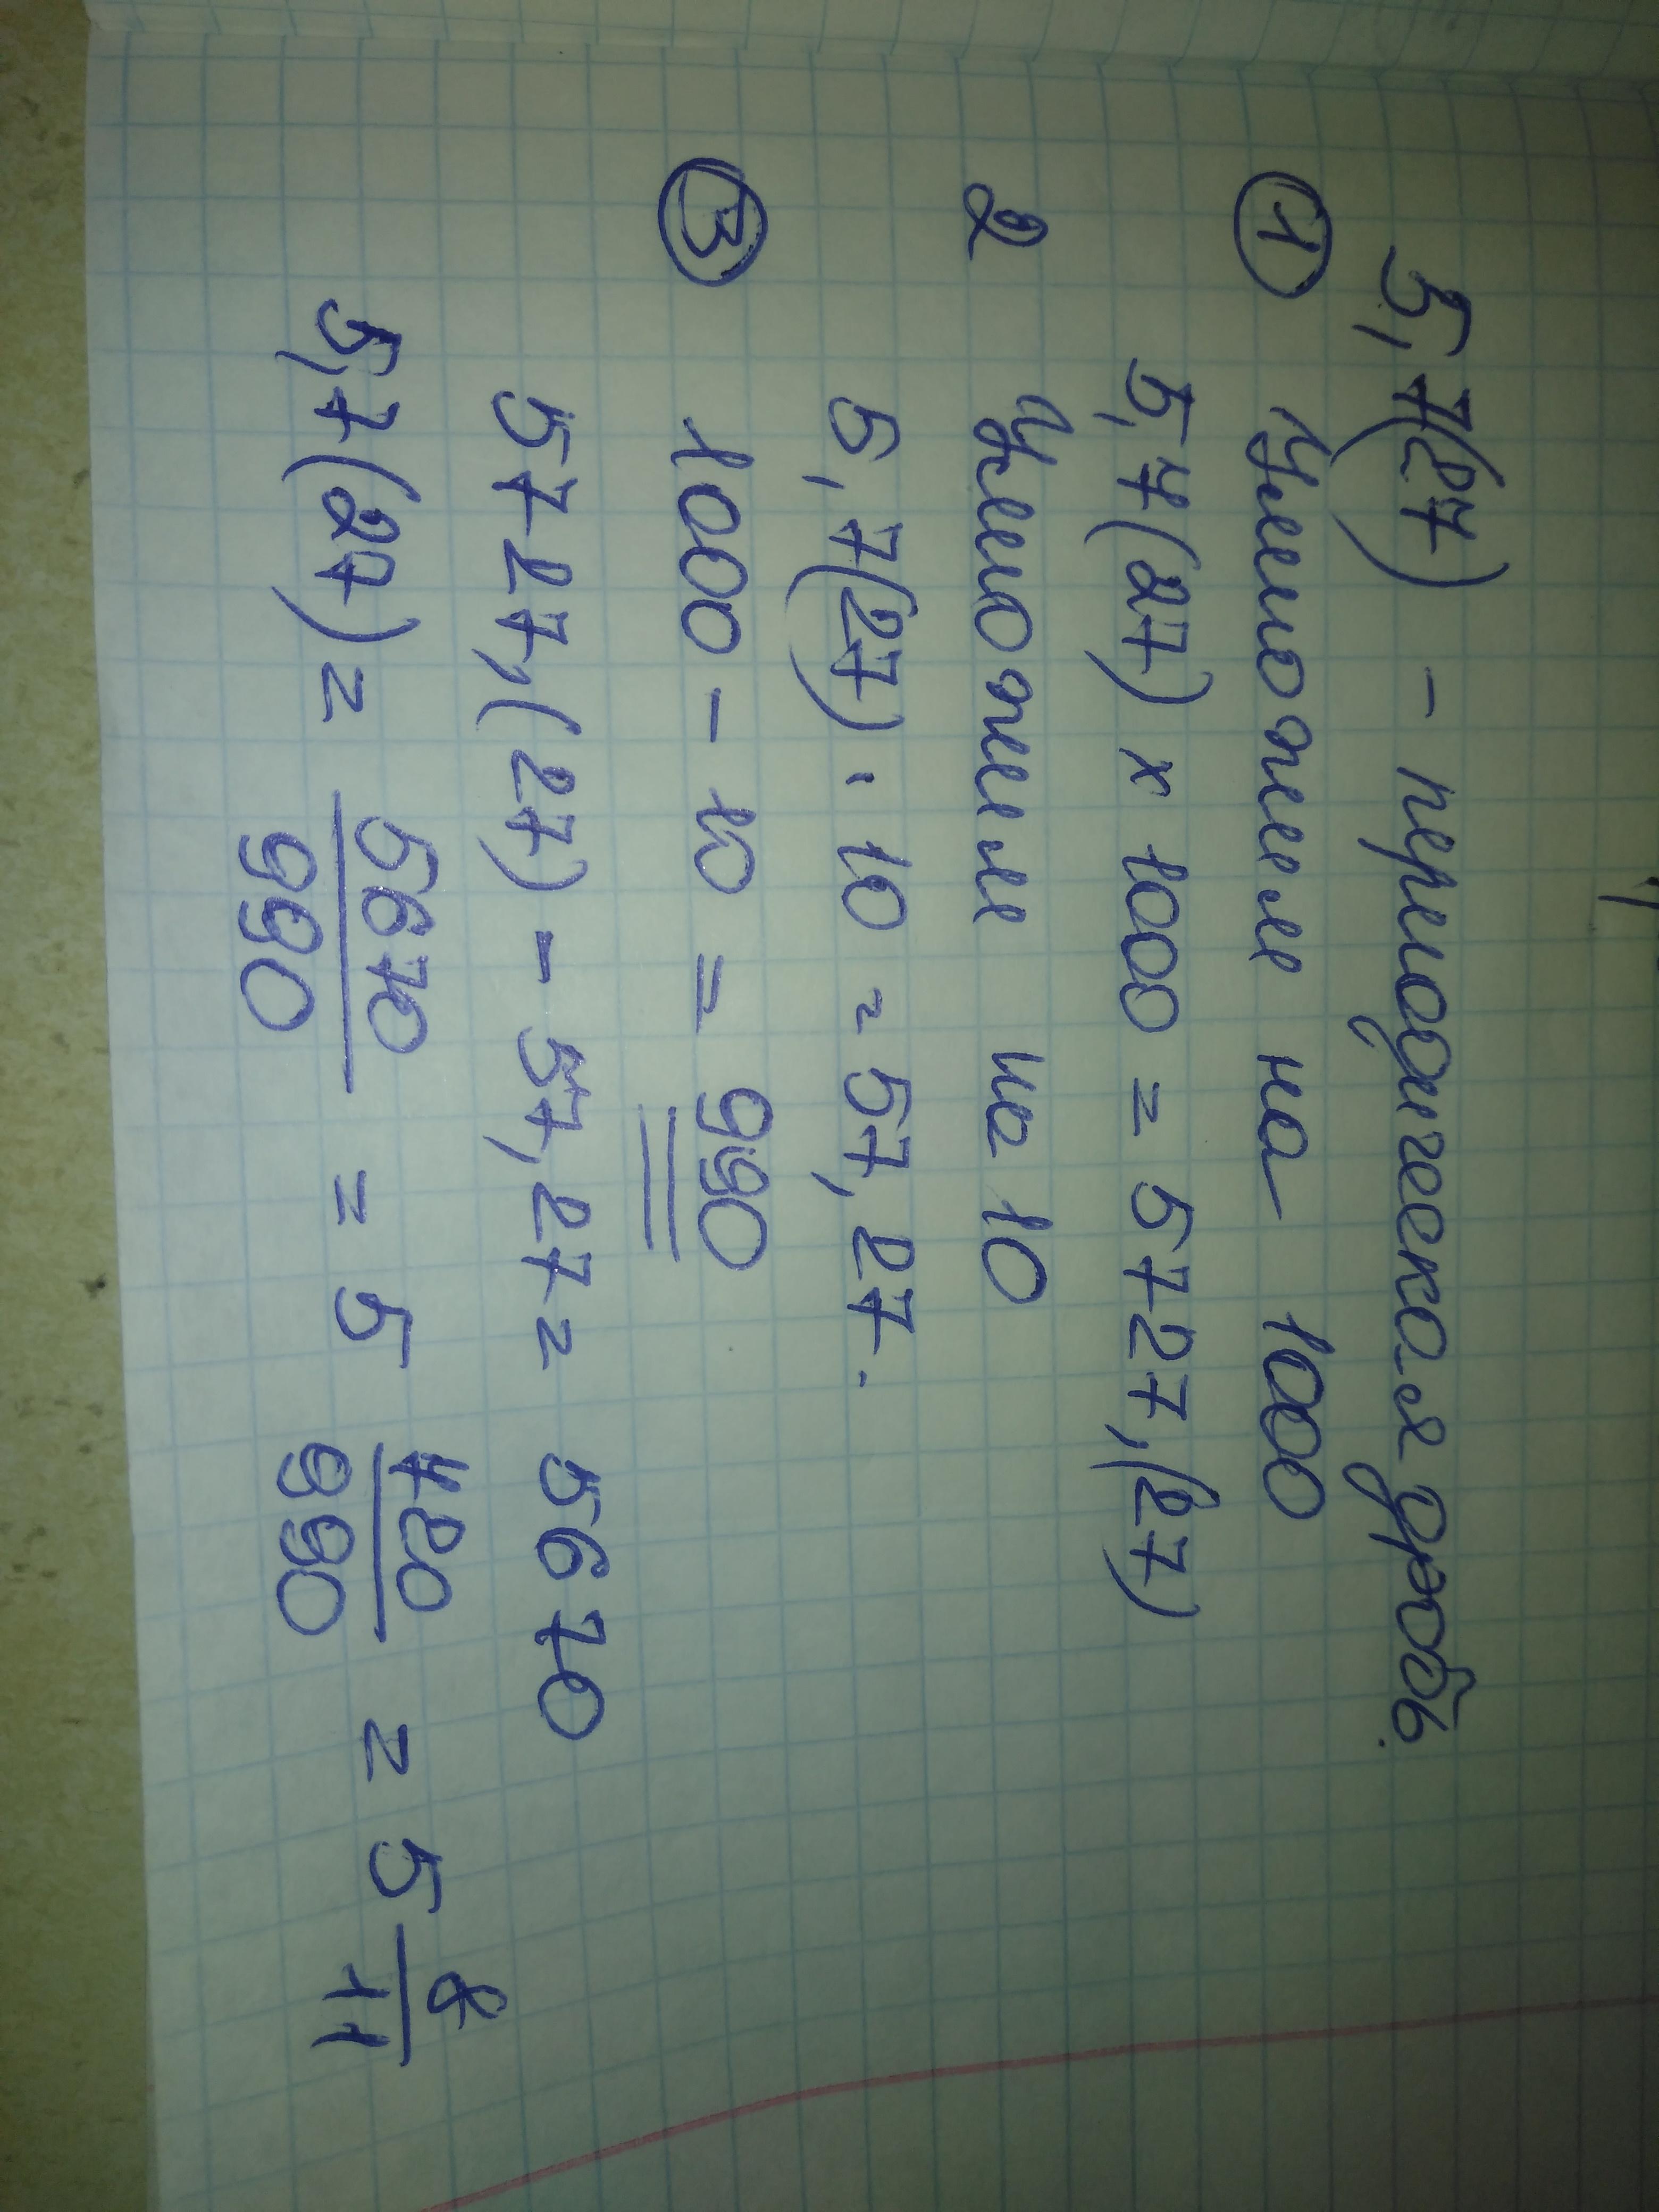 5,7(27) - периодическая дробь.
① Умножим на 1000
5,7(27) x 1000 = 5727,(27)
2 Умножим на 10
5,7(27) · 10 = 57,27.
③ 1000 - 10 = 990
5727,(27) - 57,27 = 5670
5,7(27) = 5670/990 = 5 720/990 = 5 8/11